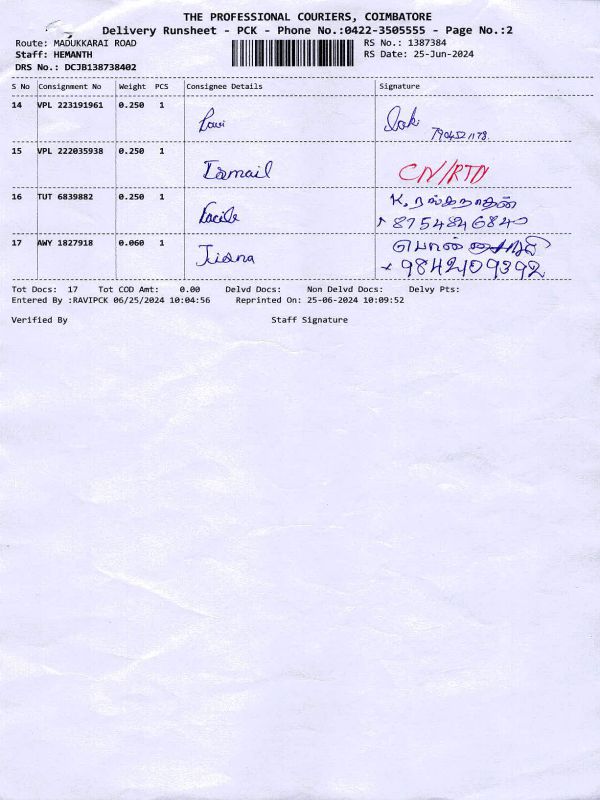 THE PROFESSIONAL COURIERS, COIMBATORE
Delivery Runsheet - PCK - Phone No.:0422-3505555 - Page No.:2
Route: MADUKKARAI ROAD
RS No.: 1387384
Staff: HEMANTH
RS Date: 25-Jun-2024
DRS No.: DCJB138738402
S No Consignment No Weight PCS Consignee Details Signature
14 VPL 223191961 0.250 1
15 VPL 222035938 0.250 1 Ismail CN/RTN
16 TUT 6839882 0.250 1 K. ரங்கநாதன்
8754846840
17 AWY 1827918 0.060 1 Jisna
9842109392
Tot Docs: 17 Tot COD Amt: 0.00 Delvd Docs: Non Delvd Docs: Delvy Pts:
Entered By :RAVIPCK 06/25/2024 10:04:56 Reprinted On: 25-06-2024 10:09:52
Verified By Staff Signature